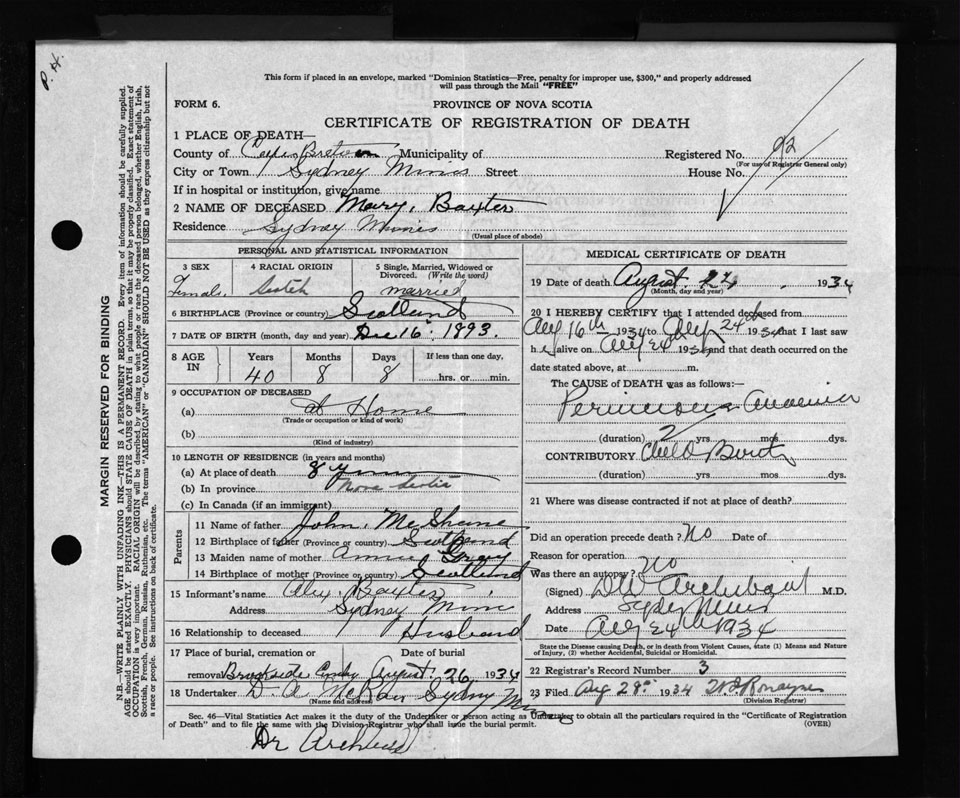 P. H.
This form if placed in an envelope, marked "Dominion Statistics—Free, penalty for improper use, $300," and properly addressed
will pass through the Mail "FREE"
FORM 6. PROVINCE OF NOVA SCOTIA
CERTIFICATE OF REGISTRATION OF DEATH
1 PLACE OF DEATH—
County of Cape Breton Municipality of Registered No. 92
(For use of Registrar General only)
City or Town Sydney Mines Street House No.
If in hospital or institution, give name
2 NAME OF DECEASED Mary Baxter
Residence Sydney Mines
(Usual place of abode)
PERSONAL AND STATISTICAL INFORMATION
3 SEX 4 RACIAL ORIGIN 5 Single, Married, Widowed or
Divorced. (Write the word)
Female Scotch married
6 BIRTHPLACE (Province or country) Scotland
7 DATE OF BIRTH (month, day and year) Dec 16 1893
8 AGE IN Years Months Days If less than one day,
40 8 8 hrs. or min.
9 OCCUPATION OF DECEASED
(a) at Home
(Trade or occupation or kind of work)
(b)
(Kind of industry)
10 LENGTH OF RESIDENCE (in years and months)
(a) At place of death 8
(b) In province Nova Scotia
(c) In Canada (if an immigrant)
Parents
11 Name of father John
12 Birthplace of father (Province or country) Scotland
13 Maiden name of mother Annie
14 Birthplace of mother (Province or country) Scotland
15 Informant's name Alex. Baxter
Address Sydney Mines
16 Relationship to deceased Husband
17 Place of burial, cremation or Date of burial
removal Brookside August 26, 1934
18 Undertaker D. A. Sydney Mines
(Name and address)
MEDICAL CERTIFICATE OF DEATH
19 Date of death August 24, 1934
(Month, day and year)
20 I HEREBY CERTIFY that I attended deceased from
Aug 16th 1934 to Aug 24th 1934 that I last saw
h er alive on Aug 24 1934 and that death occurred on the
date stated above, at m.
The CAUSE of DEATH was as follows:—
Pernicious Anaemia
(duration) 2 yrs. mos. dys.
CONTRIBUTORY Child Birth
(duration) yrs. mos. dys.
21 Where was disease contracted if not at place of death?
Did an operation precede death? No Date of
Reason for operation
Was there an autopsy? No
(Signed) Archibald M.D.
Address Sydney Mines
Date Aug 24th 1934
State the Disease causing Death, or in death from Violent Causes, state (1) Means and Nature
of Injury, (2) whether Accidental, Suicidal or Homicidal.
22 Registrar's Record Number 3
23 Filed Aug 28th 1934
(Division Registrar)
Sec. 46—Vital Statistics Act makes it the duty of the Undertaker or person acting as Undertaker to obtain all the particulars required in the "Certificate of Registration
of Death" and to file the same with the Division Registrar who shall issue the burial permit. (OVER)
Dr Archibald
MARGIN RESERVED FOR BINDING
N.B.—WRITE PLAINLY WITH UNFADING INK—THIS IS A PERMANENT RECORD. Every item of information should be carefully supplied.
AGE should be stated EXACTLY. PHYSICIANS should STATE CAUSE OF DEATH in plain terms, so that it may be properly classified. Exact statement of
OCCUPATION is very important. RACIAL ORIGIN will be described by stating to what people or race the deceased person belonged, whether English, Irish,
Scottish, French, German, Russian, Ruthenian, etc. The terms "AMERICAN" or "CANADIAN" SHOULD NOT BE USED as they express citizenship but not
a race or people. See instructions on back of certificate.